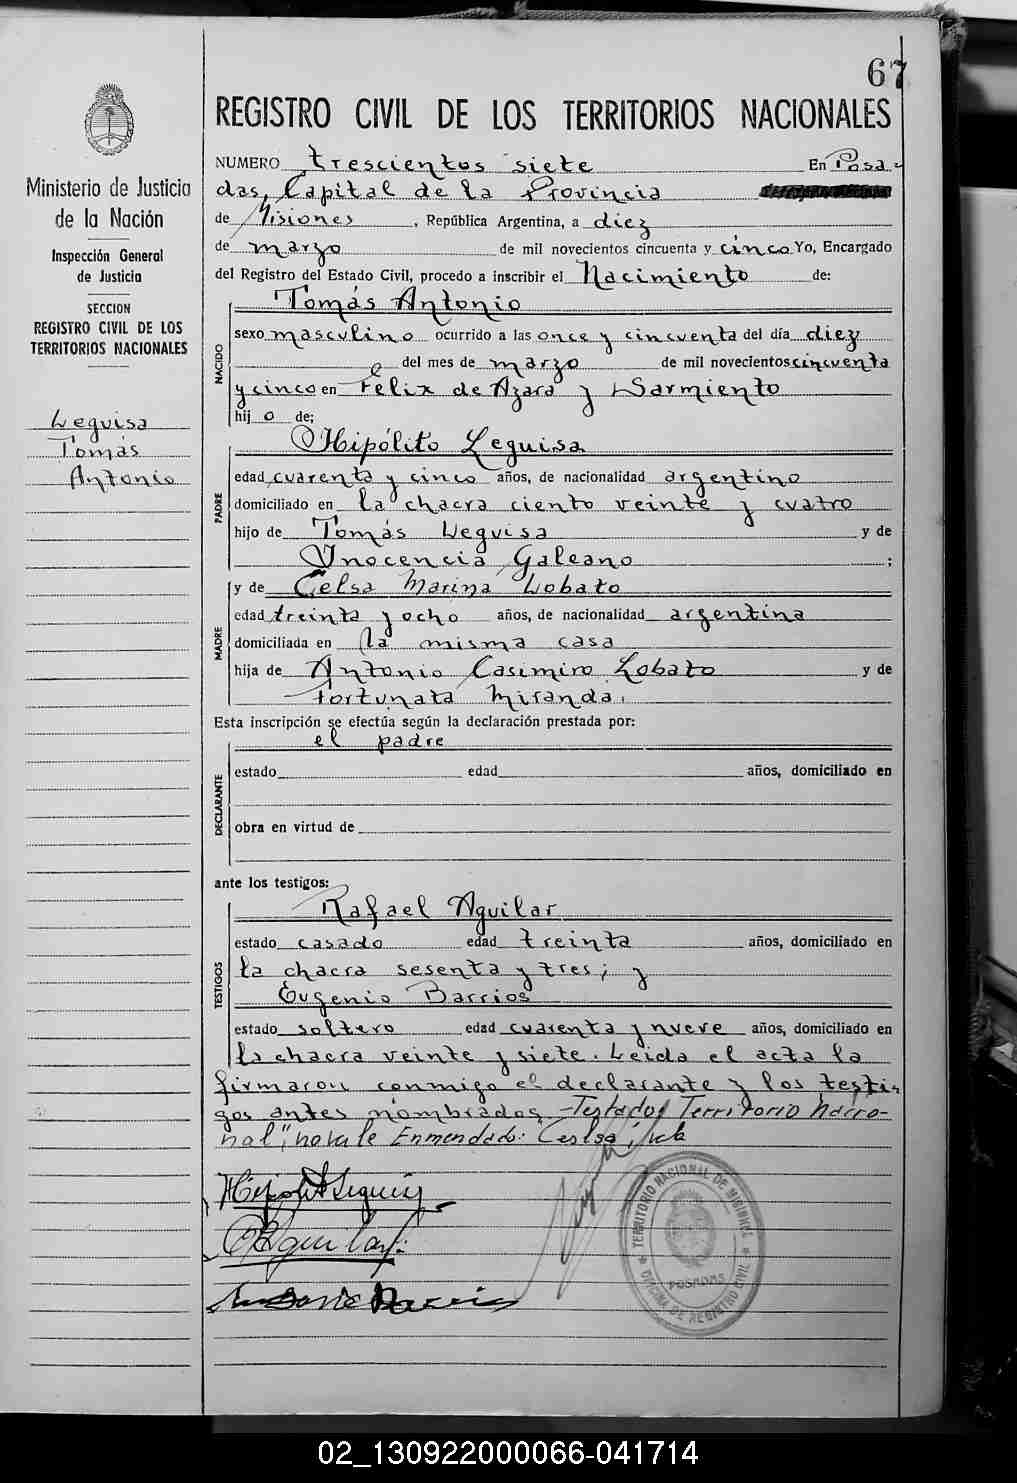 67
REGISTRO CIVIL DE LOS TERRITORIOS NACIONALES
Ministerio de Justicia
de la Nación
Inspección General
de Justicia
SECCION
REGISTRO CIVIL DE LOS
TERRITORIOS NACIONALES
Leguisa
Tomás
Antonio
NUMERO trescientos siete En Posa-
das, Capital de la Provincia
de Misiones, República Argentina, a diez
de marzo de mil novecientos cincuenta y cinco Yo, Encargado
del Registro del Estado Civil, procedo a inscribir el Nacimiento de:
Tomás Antonio
NACIDO
sexo masculino ocurrido a las once y cincuenta del día diez
del mes de marzo de mil novecientos cincuenta
y cinco en Félix de Azara y Sarmiento
hijo de;
Hipólito Leguisa
PADRE
edad cuarenta y cinco años, de nacionalidad argentino
domiciliado en la chacra ciento veinte y cuatro
hijo de Tomás Leguisa y de
Ynocencia Galeano ;
y de Celsa Marina Lobato
MADRE
edad treinta y ocho años, de nacionalidad argentina
domiciliada en la misma casa
hija de Antonio Casimiro Lobato y de
Fortunata Miranda.
Esta inscripción se efectúa según la declaración prestada por:
el padre
DECLARANTE
estado edad años, domiciliado en
obra en virtud de
ante los testigos:
Rafael Aguilar
TESTIGOS
estado casado edad treinta años, domiciliado en
la chacra sesenta y tres; y
Eugenio Barrios
estado soltero edad cuarenta y nueve años, domiciliado en
la chacra veinte y siete. Leida el acta la
firmaron conmigo el declarante y los testi-
gos antes nombrados. -Testado "Territorio nacio-
nal", no vale Enmendado: Celsa, vale
Hipolito Leguisa
RAguilar.
TERRITORIO NACIONAL DE MISIONES
POSADAS
OFICINA DE REGISTRO CIVIL
02_130922000066-041714